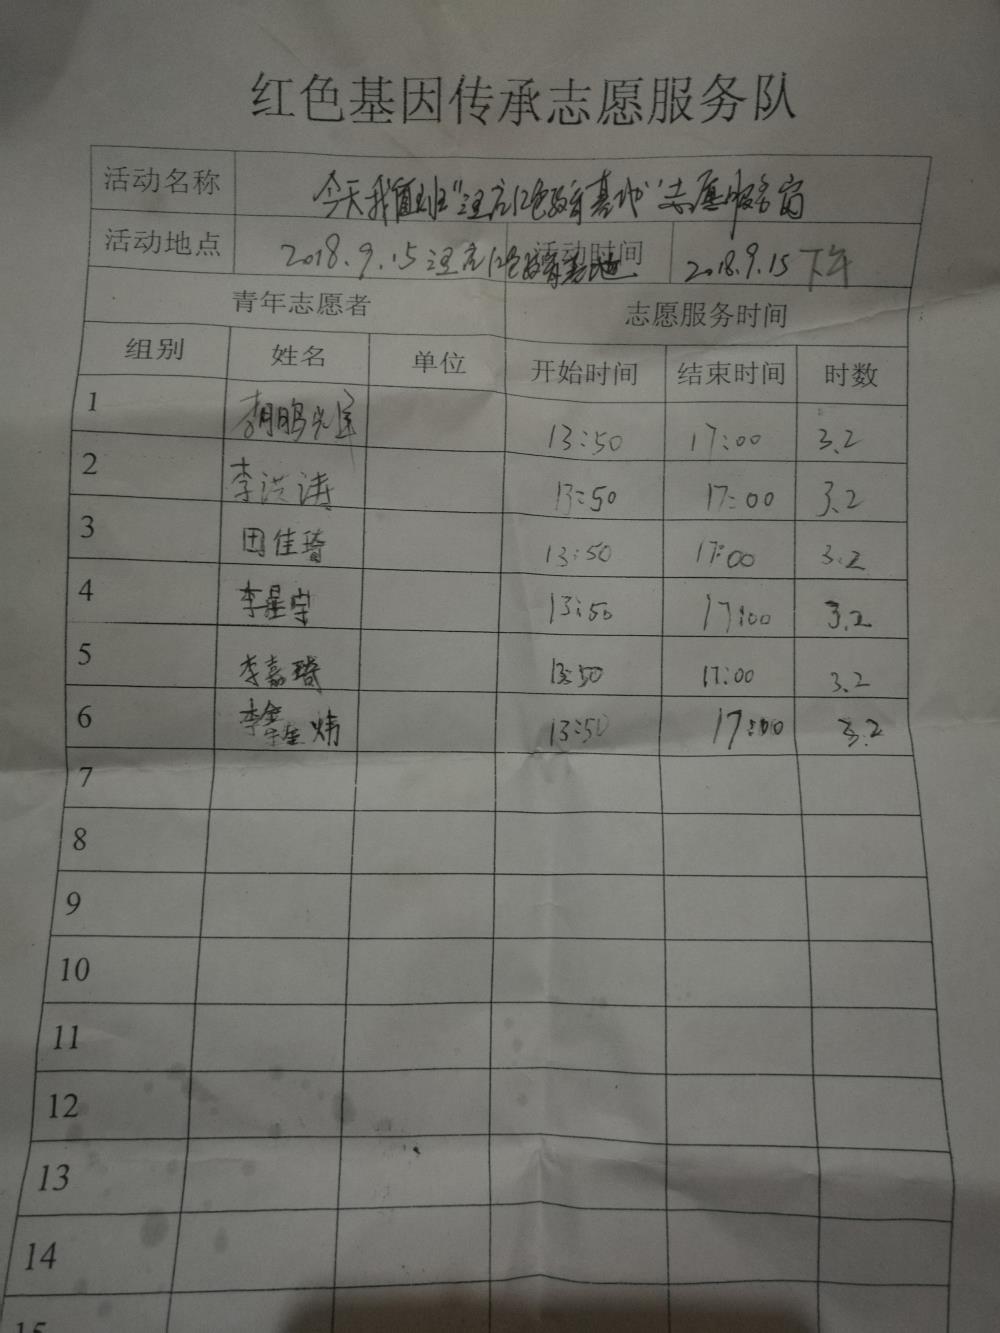 红色基因传承志愿服务队
活动名称 今天我值班"汪庄红色教育基地"志愿服务岗
活动地点 2018.9.15汪庄红色教育基地 活动时间 2018.9.15 下午
青年志愿者 志愿服务时间
组别 姓名 单位 开始时间 结束时间 时数
1 13:50 17:00 3.2
2 李洪涛 13:50 17:00 3.2
3 田佳琦 13:50 17:00 3.2
4 李星宇 13:50 17:00 3.2
5 李嘉琦 13:50 17:00 3.2
6 李 炜 13:50 17:00 3.2
7
8
9
10
11
12
13
14
15